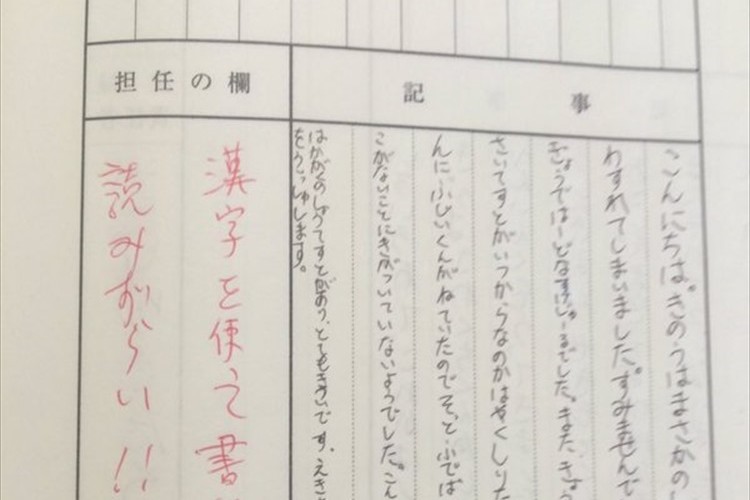 記事
こんにちは。きのうはまさかの
わすれてしまいました。すみませんで
ぎょうではーどなすけじゅーるでした。また、きょ
さいてすとがいつからなのかはやくしりた
んに、ふじいくんがねていたのでそっとふでば
こがないことにきがついていないようでした。こん
はかがくのしょうてすとがあり、とても
します。
担任の欄
漢字を使って書
読みずらい!!